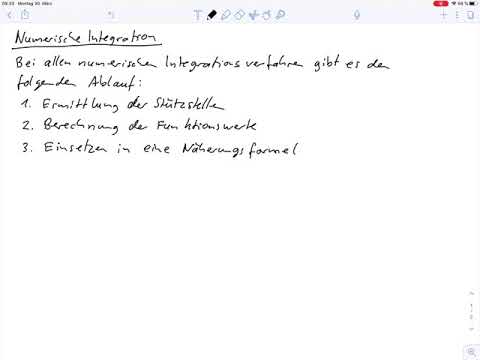 09:33 Montag 30. März
59 %
Numerische Integration
Bei allen numerischen Integrationsverfahren gibt es den
folgenden Ablauf:
1. Ermittlung der Stützstellen
2. Berechnung der Funktionswerte
3. Einsetzen in eine Näherungsformel